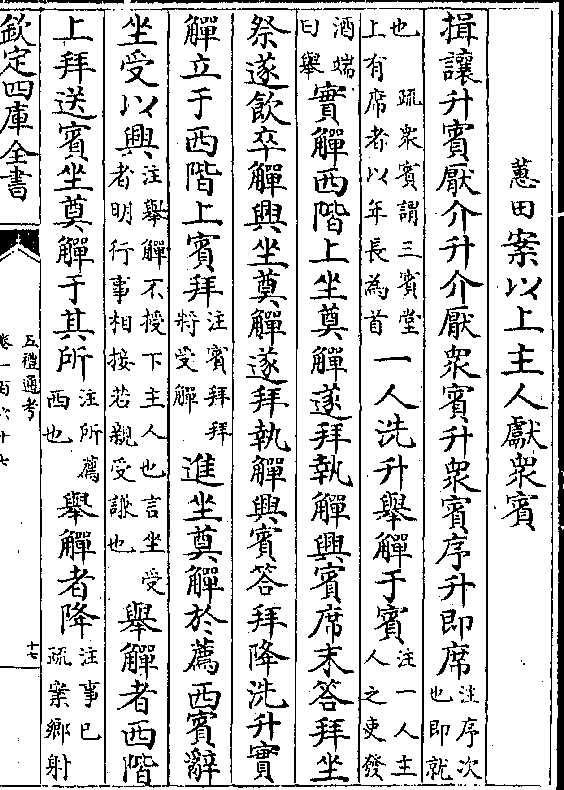 蕙田案以上主人獻衆賓
揖讓升賓厭介升介厭衆賓升衆賓序升即席注序次也即就
也疏衆賓謂三賓堂上有席者以年長為首一人洗升舉觶于賓注一人主人之吏發
酒端曰舉實觶西階上坐奠觶遂拜執觶興賓席末答拜坐
祭遂飲卒觶興坐奠觶遂拜執觶興賓答拜降洗升實
觶立于西階上賓拜注賓拜拜將受觶進坐奠觶於薦西賓辭
坐受以興注舉觶不授下主人也言坐受者明行事相接若親受謙也舉觶者西階
上拜送賓坐奠觶于其所注所薦西也舉觶者降注事已疏案鄉射
欽定四庫全書
五禮通考
卷一百六十七
十七